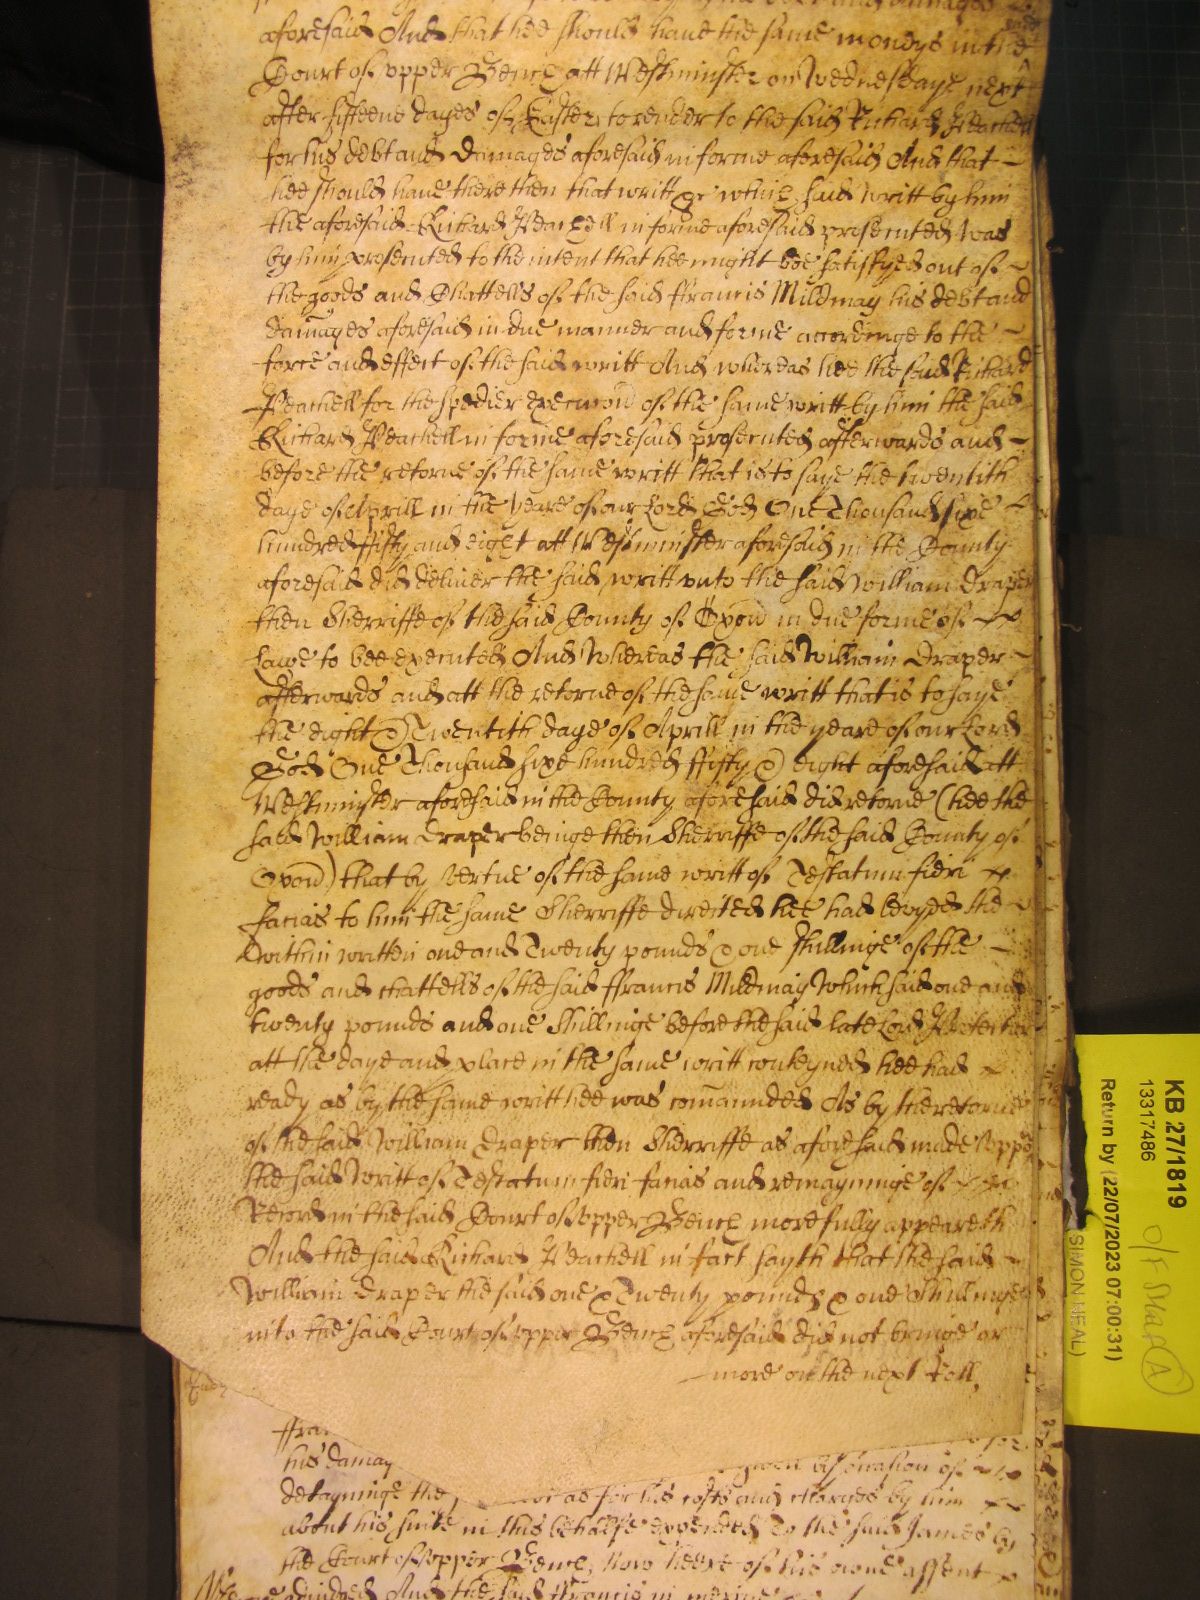 aforesaid And that hee should have the same moneys in the
Court of upper Bench att Westminster on Wednesdaye next
after fifteene dayes of Easter to render to the said Richard Peachell
for his debt and damages aforesaid in forme aforesaid And that
hee should have there then that writt &c which said writt by him
the aforesaid Richard Peachell in forme aforesaid prosecuted was
by him prosecuted to the intent that hee might bee satisfyed out of
the goods and Chattells of the said ffrancis Mildmay his debt and
damages aforesaid in due manner and forme accordinge to the
force and effect of the said writt And whereas hee the said Richard
Peachell for the spedier execucon of the same writt by him the said
Richard Peachell in forme aforesaid prosecuted afterwards and
before the retorne of the same writt that is to saye the twentith
daye of Aprill in the yeare of our Lord God One Thousand sixe
hundred ffifty and eight att Westminster aforesaid in the County
aforesaid did deliver the said writt unto the said William Draper
then Sherriffe of the said County of Oxon in due forme of
Lawe to bee executed And Whereas the said William Draper
afterwards and att the retorne of the same writt that is to saye
the eight & Twentith daye of Aprill in the yeare of our Lord
God One Thousand sixe hundred ffifty & eight aforesaid att
Westminster aforesaid in the County aforesaid did retorne (hee the
said William Draper beinge then Sherriffe of the said County of
Oxon) that by vertue of the same writt of Testatum fieri
facias to him the same Sherriffe directed hee had levyed the
within written one and Twenty pounds & one shillinge of the
goods and chattells of the said ffrancis Mildmay Which said one and
twenty pounds and one Shillinge before the said late Lord Protector
att the daye and place in the same writt conteyned hee had
ready as by the same writt hee was comaunded As by the retorne
of the said William Draper then Sherriffe as aforesaid made uppon
the said Writt of Testatum fieri facias and remayninge of
Record in the said Court of upper Bench more fully appeareth
And the said Richard Peachell in fact sayth that the said
William Draper the said one & Twenty pounds & one Shillinge
into the said Court of upper Bench aforesaid did not bringe or
more on the next Roll
his damag
detayninge the as for his costs and charges by him
about his suite in this behalfe expended To the said James by
the Court of upper Bench, Now heere of his owne assent
And the said ffrancis in
KB 27/1819
13317486
Return by (22/07/2023 07:00:31)
(SIMON HEAL)
A